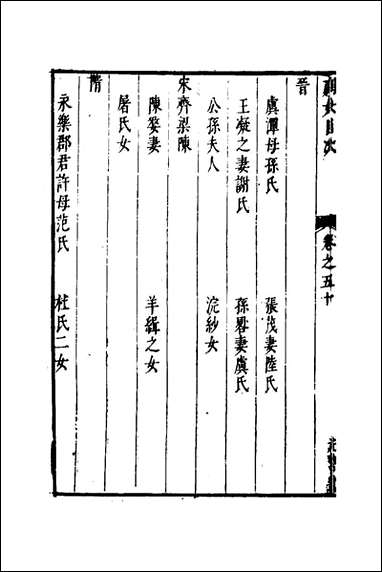 目次
卷之五十
晋
虞潭母孫氏
張茂妻陸氏
王凝之妻謝氏
孫晷妻虞氏
公孫夫人
浣紗女
宋齊梁陳
陳婺妻
羊緝之女
屠氏女
隋
永樂郡君許母范氏
杜氏二女